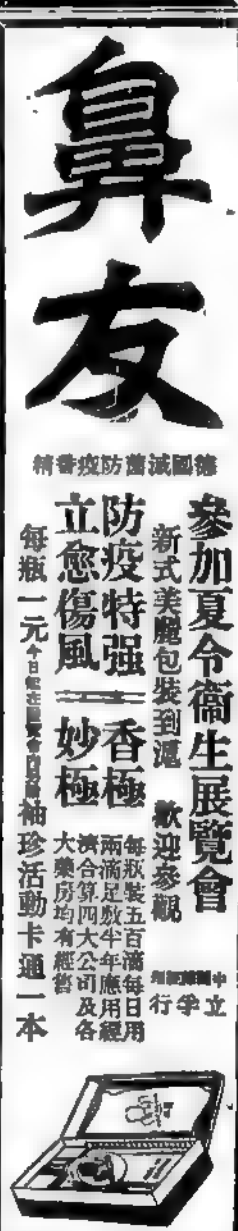 鼻友
德國滅菌防疫香精
參加夏令衞生展覽會
新式美麗包裝到滬 歡迎參觀
防疫特强 香極
立愈傷風 妙極
每瓶裝五百滴每日用
兩滴足敷半年應用經
濟合算四大公司及各
大藥房均有經售
每瓶一元今日起在展覽會內另贈袖珍活動卡通一本
立孚行